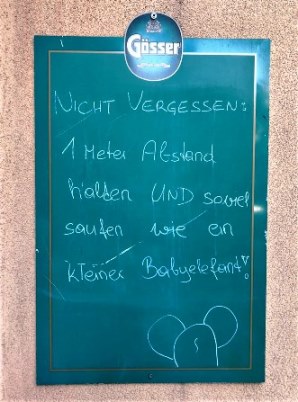 Gösser
NICHT VERGESSEN:
1 Meter Abstand
halten UND soviel
saufen wie ein
kleiner Babyelefant!